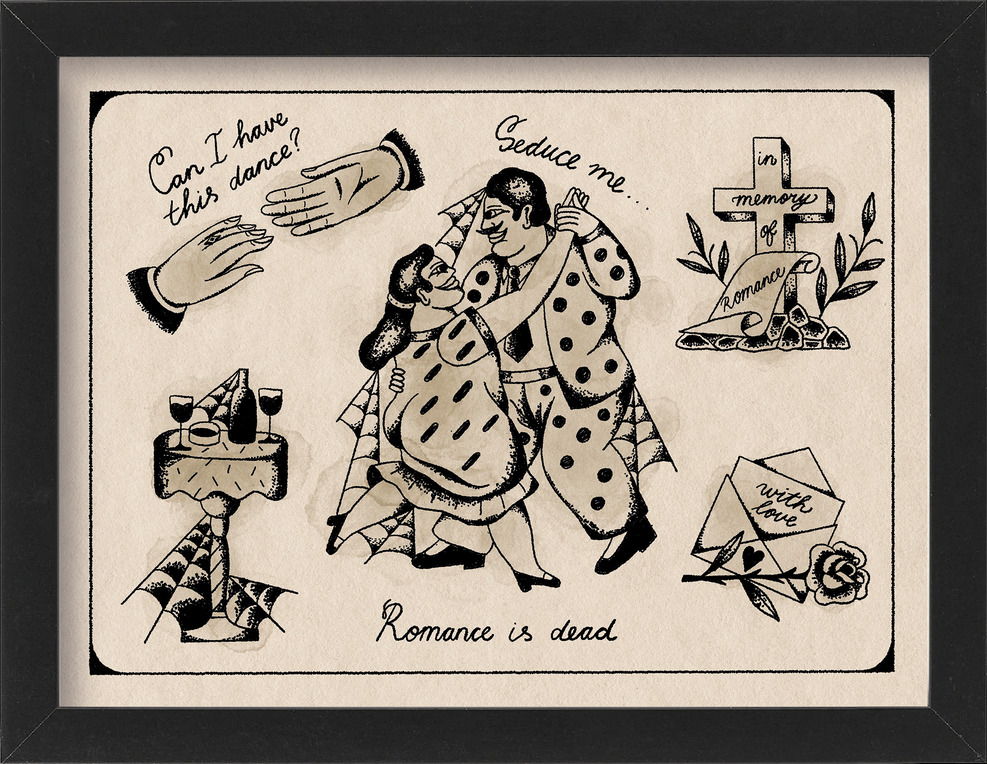 Can I have
this dance?
Seduce me.....
in
memory
of
Romance
with
love
Romance is dead